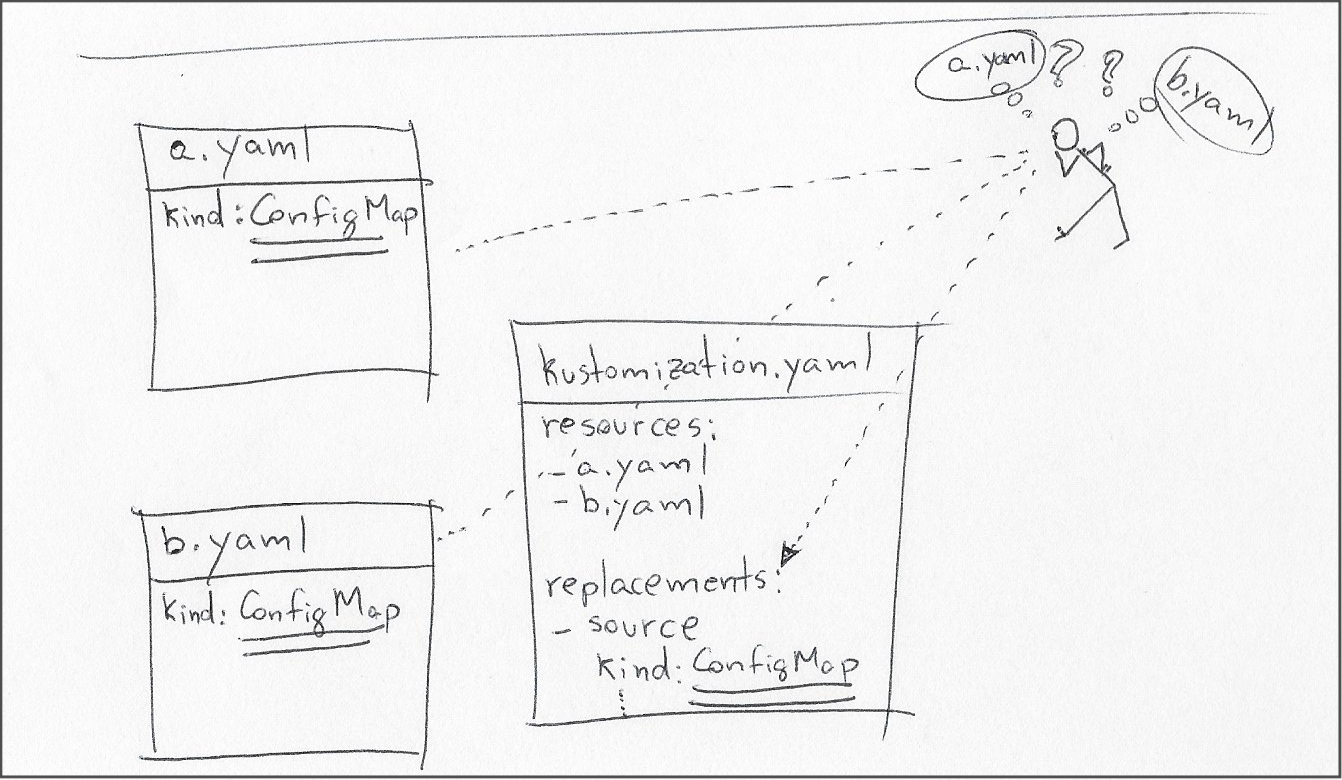 a.yaml ? ? b.yaml
a.yaml
kind: ConfigMap
kustomization.yaml
resources:
- a.yaml
- b.yaml
replacements:
- source
kind: ConfigMap
b.yaml
kind: ConfigMap